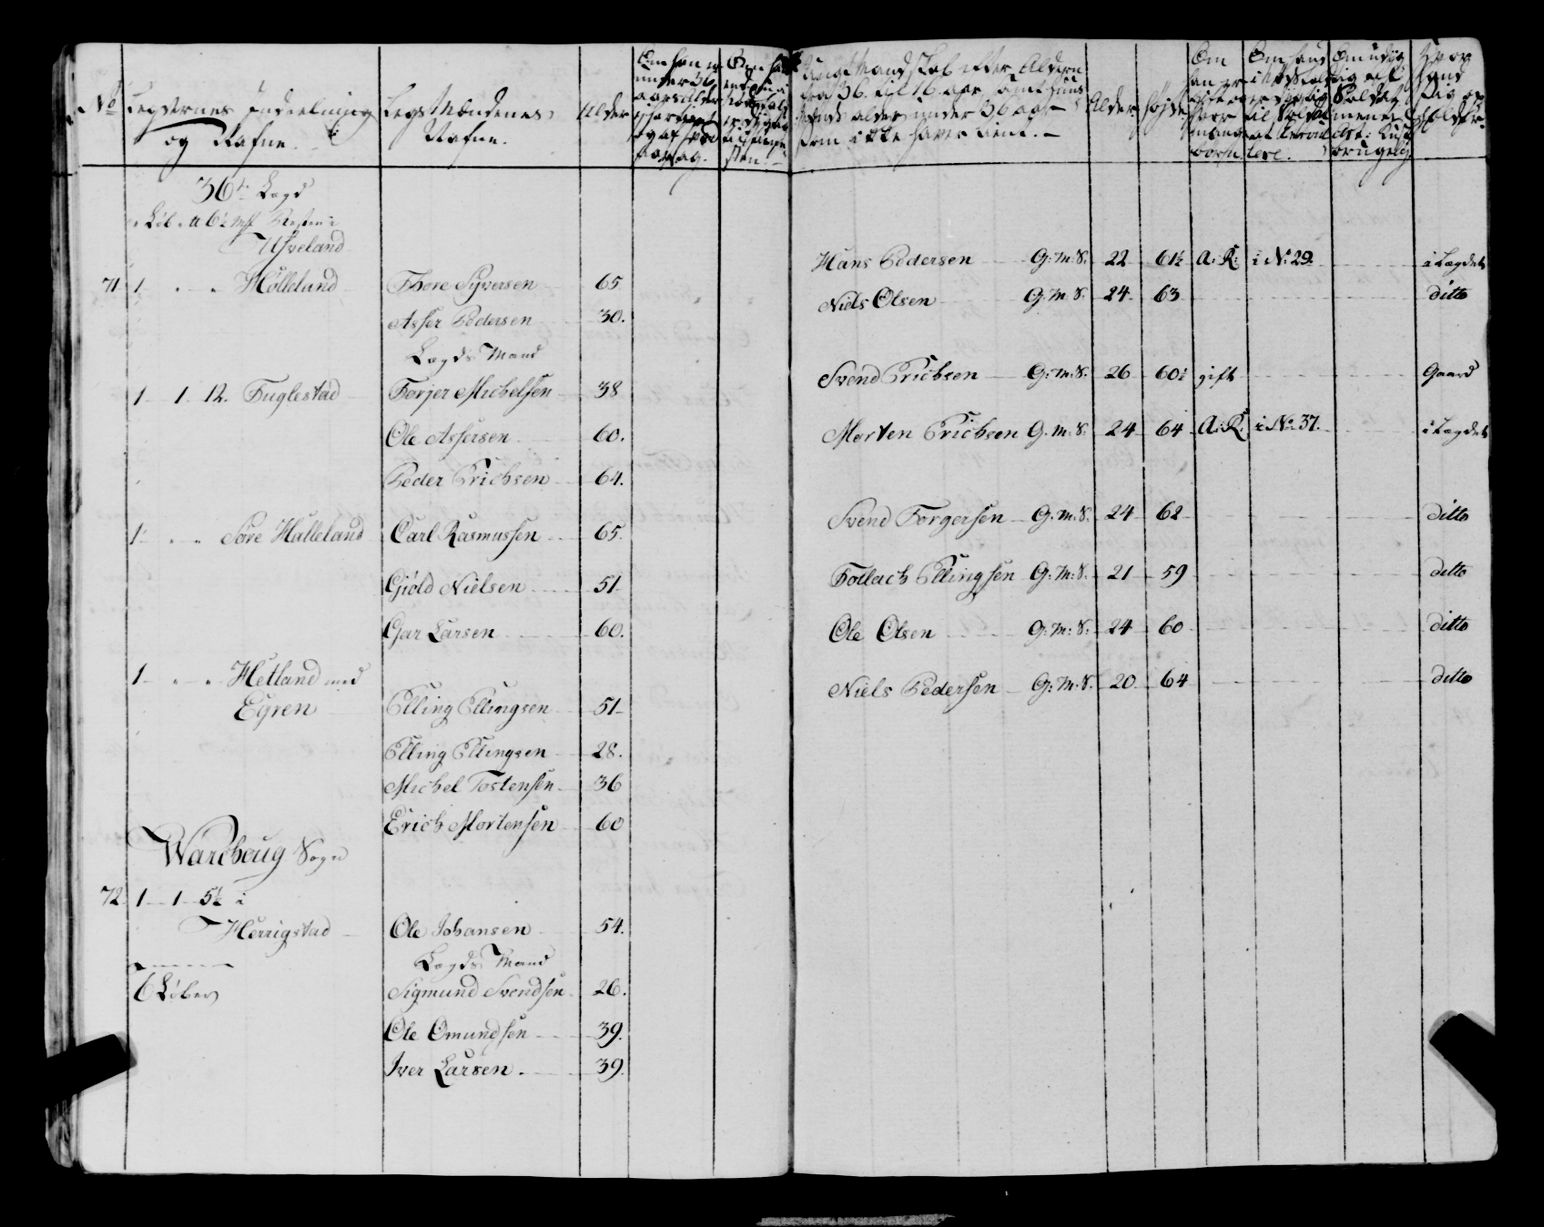 No
Legdernes Indeelning
og Nafne.
Legs Mændenes
Nafne.
Alder
Unge Mandskab efter Alderen
fra 36. til 16 aar
alder under 36 aar
som ikke haver tient.
Alder
Højde
36te Lægd
Usveland
71 1 " " Mølleland
Thore Syversen 65
Asser Pedersen 30.
Lægds Mand
1 1 12. Fuglestad
Torjer Michelsen 38
Ole Assersen 60.
Peder Erichsen 64.
1 " " Søre Halleland
Carl Rasmussen 65.
Giøld Nielsen 51
Gier Larsen 60.
1 " " Hetland med
Egren
Elling Ellingsen 51
Elling Ellingsen 28.
Michel Tostensen 36
Erich Mortensen 60
Wareboug Sogn
72 1 1 5½ i
Herrigstad
Ole Johansen 54.
Lægds Mand
6 Løber
Sigmund Svendsen 26.
Ole Omundsen 39.
Iver Larsen. 39.
Hans Pedersen G:M:S: 22 61½ A: K: i No 29. i Lægdet
Niels Olsen G:M:S: 24 63 ditto
Svend Erichsen G:M:S: 26 60½ gift Gaard
Morten Erichsen G:M:S: 24 64 A: K: i No 37. i Lægdet
Svend Torgersen G:M:S: 24 62 ditto
Tollach Ellingsen G:M:S: 21 59 ditto
Ole Olsen G:M:S: 24 60 ditto
Niels Pedersen G:M:S: 20 64 ditto